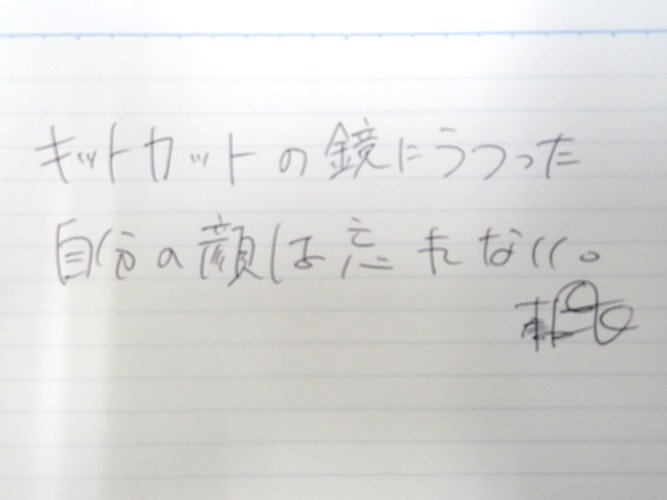 キットカットの鏡にうつった
自分の顔は忘れない。